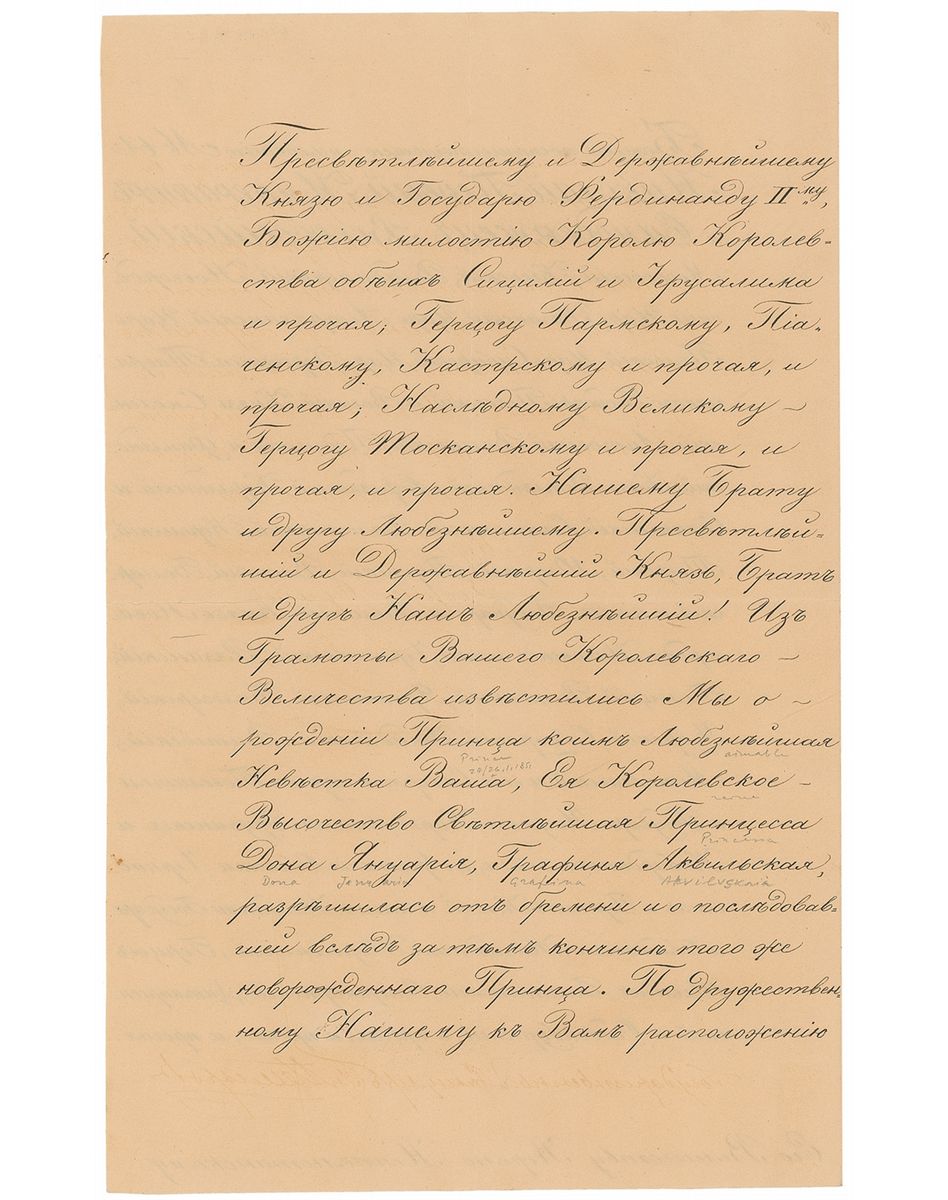 Пресвѣтлѣйшему и Державнѣйшему
Князю и Государю Фердинанду II му,
Божіею милостію Королю Королев-
ства обѣихъ Сицилій и Іерусалима
и прочая; Герцогу Пармскому, Піа-
ченскому, Кастрскому и прочая, и
прочая; Наслѣдному Великому –
Герцогу Тосканскому и прочая, и
прочая, и прочая. Нашему Брату
и другу Любезнѣйшему. Пресвѣтлѣй-
шій и Державнѣйшій Князь, Братъ
и другъ Нашъ Любезнѣйшій! Изъ
Грамоты Вашего Королевскаго –
Величества извѣстились Мы о –
рожденіи Принца коимъ Любезнѣйшая
aimable
Невѣстка Ваша, Ея Королевское –
Высочество Свѣтлѣйшая Принцесса
Дона Януарія, Графиня Аквильская,
Dona Grafinia
разрѣшилась отъ бремени и о послѣдовав-
шей вслѣдъ за тѣмъ кончинѣ того же
новорожденнаго Принца. По дружествен-
ному Нашему къ Вамъ расположенію